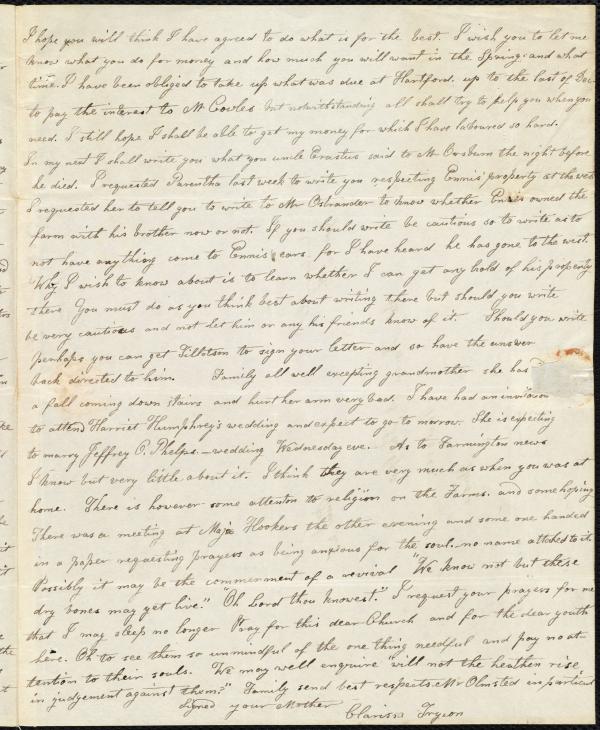 I hope you will think I have agreed to do what is for the best. I wish you to let me
know what you do for money and how much you will want in the Spring and what
time. I have been obliged to take up what was due at Hartford. up to the last of Dec
to pay the interest to Mr Cowles but notwithstanding all shall try to help you when you
need. I still hope I shall be able to get my money for which I have laboured so hard.
In my next I shall write you what you uncle Erastus said to Mr Orsburn the night before
he died. I requested Parentha last week to write you respecting Ennis' property at the west
I requested her to tell you to write to Mr Ostrander to know whether Ennis owned the
farm with his brother now or not. If you should write be cautious so to write as to
not have any thing come to Ennis' ears. for I have heard he has gone to the west.
Why I wish to know about is to learn whether I can get any hold of his property
there You must do as you think best about writing there but should you write
be very cautious and not let him or any his friends know of it. Should you write
perhaps you can get Tillotson to sign your letter and so have the answer
back directed to him. Family all well excepting grandmother she has
a fall coming down stairs and hurt her arm very bad. I have had an invitation
to attend Harriet Humphrey's wedding and expect to go to morrow. She is expecting
to marry Jeffrey O. Phelps.—wedding Wednesday eve. As to Farmington news
I know but very little about it. I think they are very much as when you was at
home. There is however some attention to religion on the Farms. and some hoping
There was a meeting at Major Hookers the other evening and some one handed
in a paper requesting prayers as being anxious for the soul—no name attched to it.
Possibly it may be the commenment of a revival "We know not but these
dry bones may yet live." "Oh Lord thou knowest." I request your prayers for me
that I may sleep no longer Pray for this dear Church and for the dear youth
here. Oh to see them so unmindful of the one thing needful and pay no at-
tention to their souls. We may well enquire "will not the heathen rise
in judgement against them?" Family send best respects. Mr Olmsted in particul
Signed your Mother
Clarissa Tryon